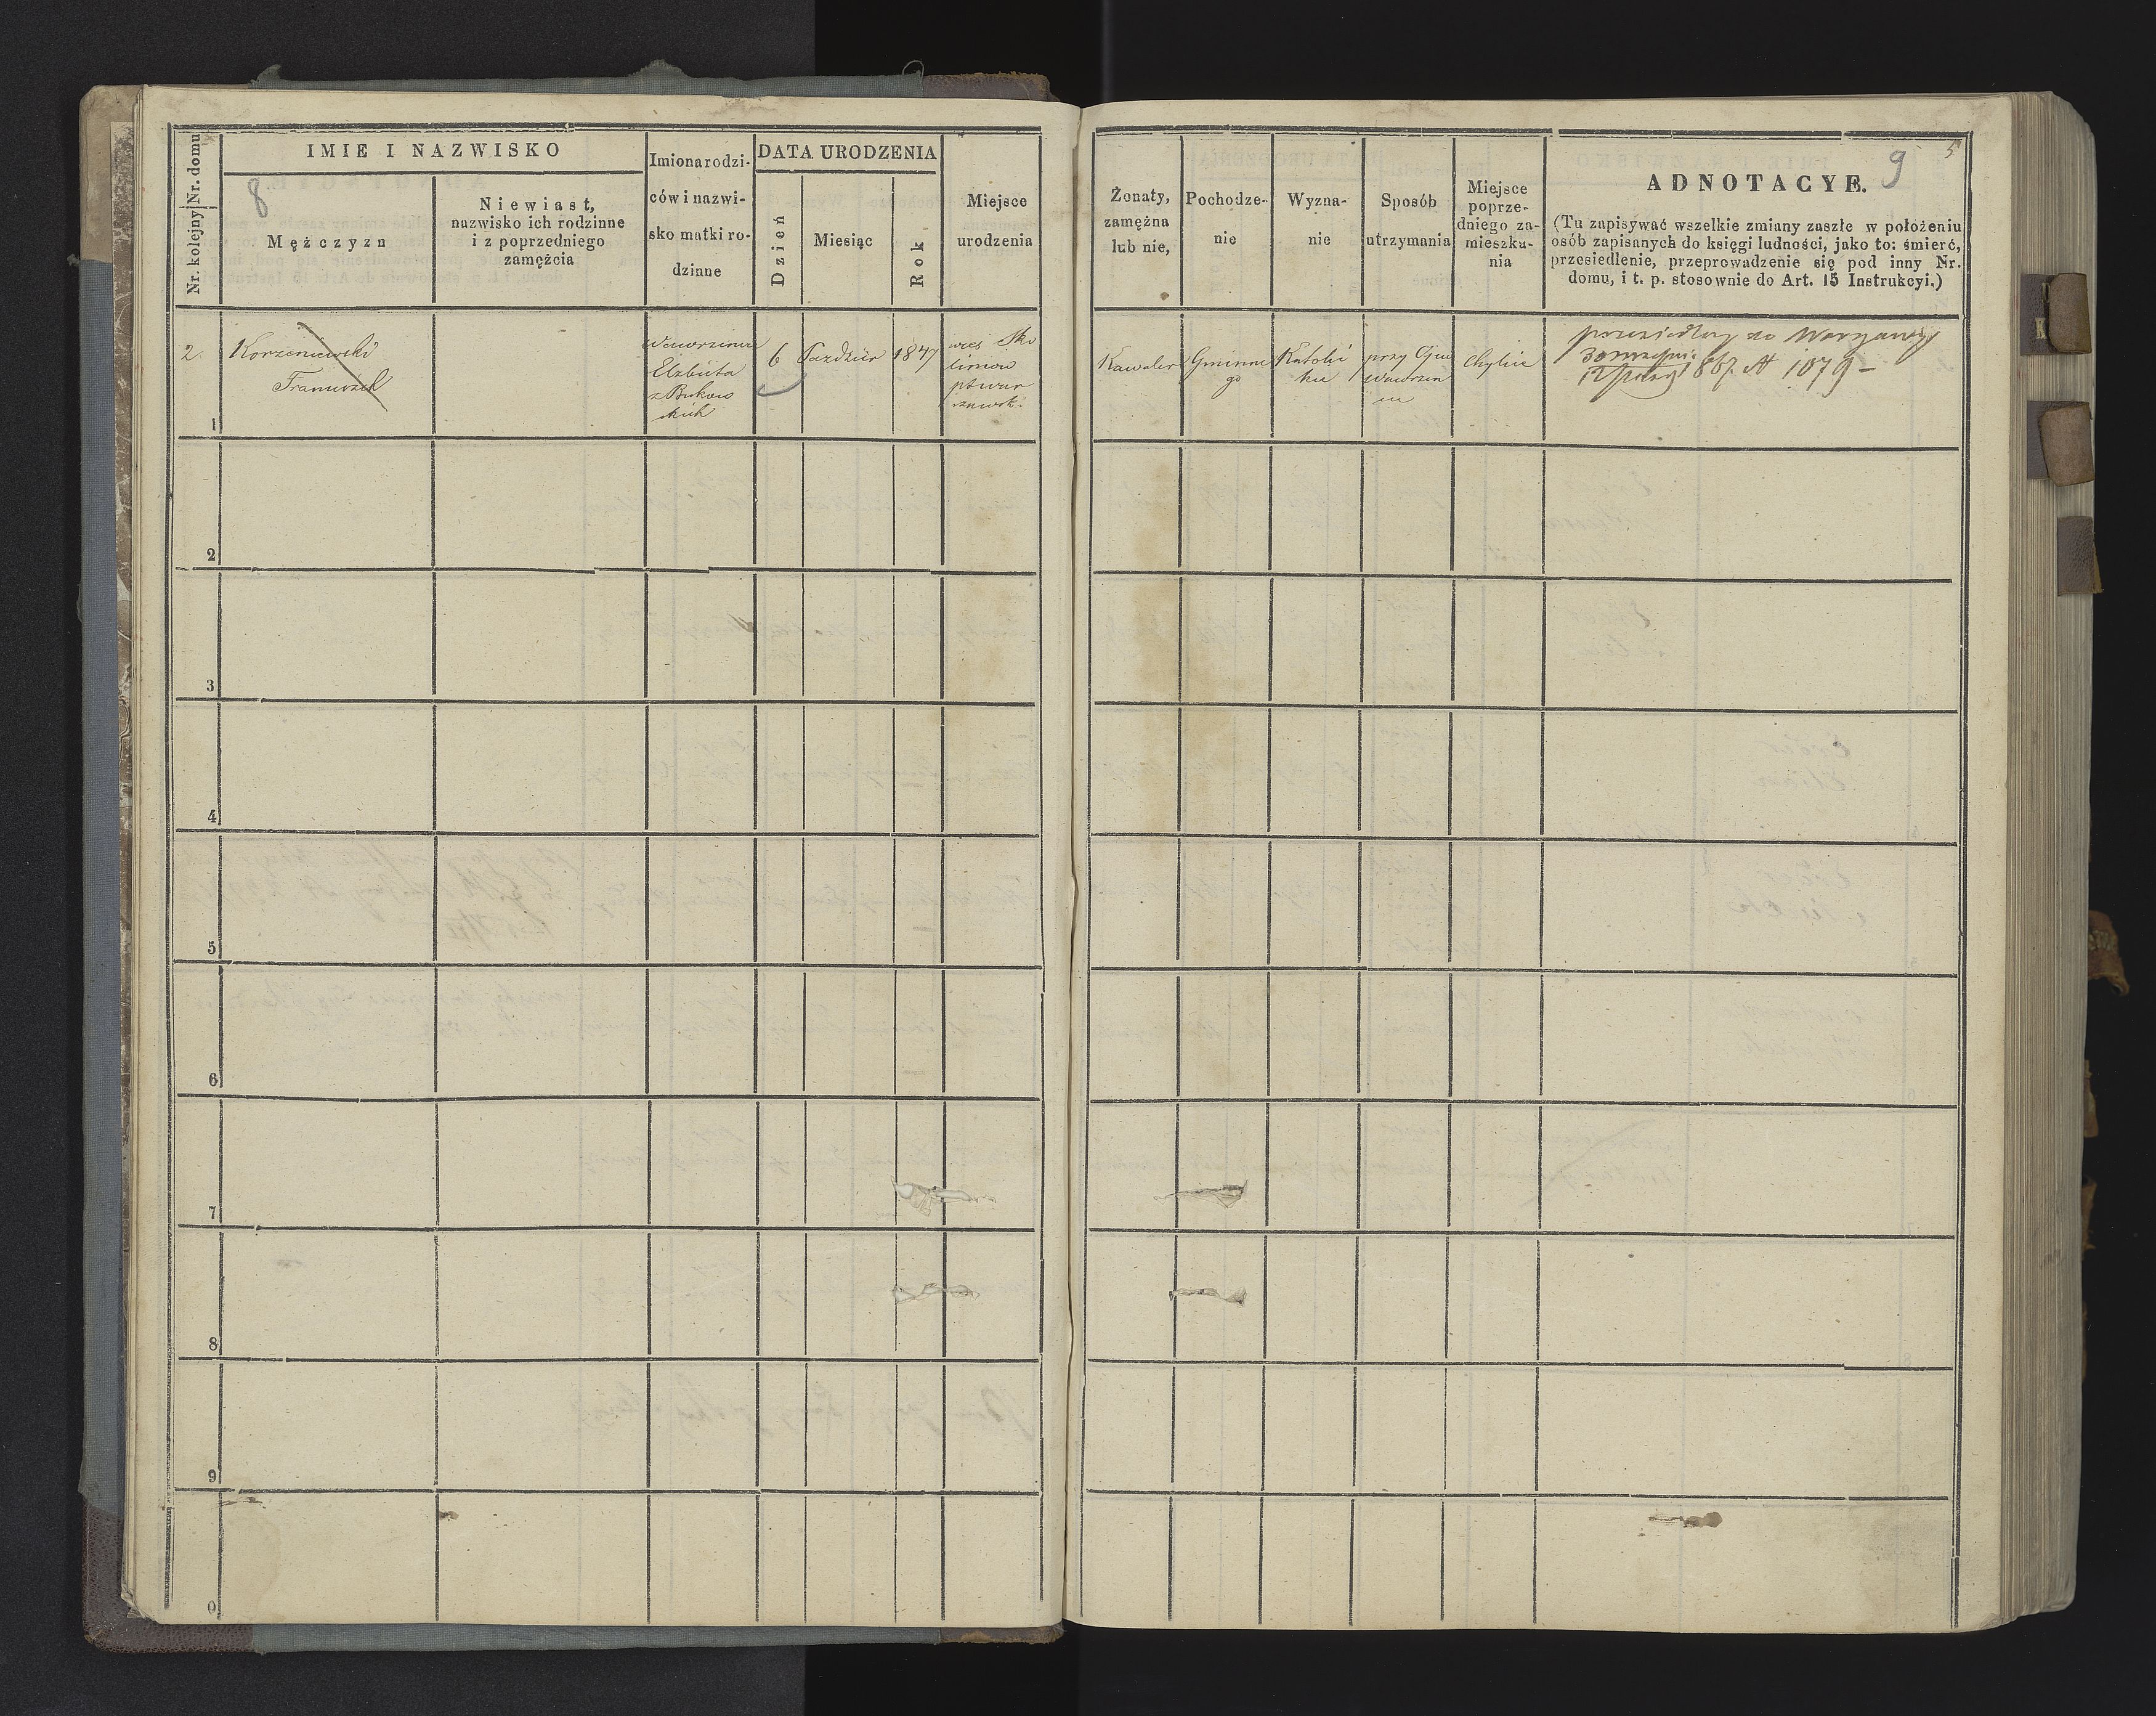 Nr. kolejny Nr. domu
IMIE I NAZWISKO
8
Mężczyzn
Niewiast,
nazwisko ich rodzinne
i z poprzedniego
zamężcia
Imiona rodzi-
ców i nazwi-
sko matki ro-
dzinne
DATA URODZENIA
Dzień
Miesiąc
Rok
Miejsce
urodzenia
2.
Korzeniewski
Franciszek
Wawrziniec
Elżbieta
z Bukow
skich
6
Paździer
1847
wieś Sko
limow
pt war
szawsk.
1
2
3
4
5
6
7
8
9
0
9
5
Żonaty,
zamężna
lub nie,
Pochodze-
nie
Wyzna-
nie
Sposób
utrzymania
Miejsce
poprze-
dniego za-
mieszka-
nia
ADNOTACYE.
(Tu zapisywać wszelkie zmiany zaszłe w położeniu
osób zapisanych do księgi ludności, jako to: śmierć,
przesiedlenie, przeprowadzenie się pod inny Nr.
domu, i t. p. stosownie do Art. 15 Instrukcyi.)
Kawaler
Gminne
go
Katolic
kie
przy Ojcu
Wawrzeń
cu
Chylice
przesiedlony do Warszawy
30
12
186 № 1079 –